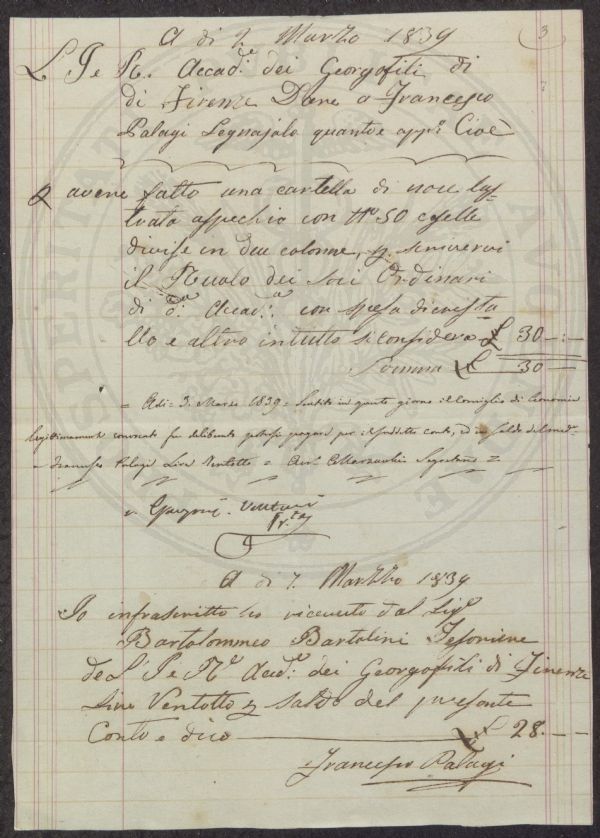 A di 2 Marzo 1839
3
L' I e R. Accad.ᵃ dei Georgofili di
di Firenze Dare a Francesco
Palagi Legnajolo quanto e app.º Cioè
avere fatto una cartella di noce lu-
strata a specchio con Nº 50 caselle
divise in due colonne, p. scrivervi
il Ruolo dei soci Ordinari
di d.ª Accad.ª con spesa di crista
llo e altro in tutto si considera £ 30 —:—
Somma £ 30 —
= Adi= 3. Marzo 1839= Sentito in questo giorno il Consiglio di
legittimamente convocato fu deliberato potersi pagare per il suddetto conto, ed in saldo del med.º
a Francesco Palagi Lire Ventotto =
A di 7. Marzzo 1839
Io infrascritto ho ricevuto dal Sig.ʳ
Bartolommeo Bartolini Tesoriere
de L' I e R.ᵉ Acad.ᵃ dei Georgofili di Firenze
Lire Ventotto p saldo del presente
Conto e dico £ 28.—
Francesco Palagi